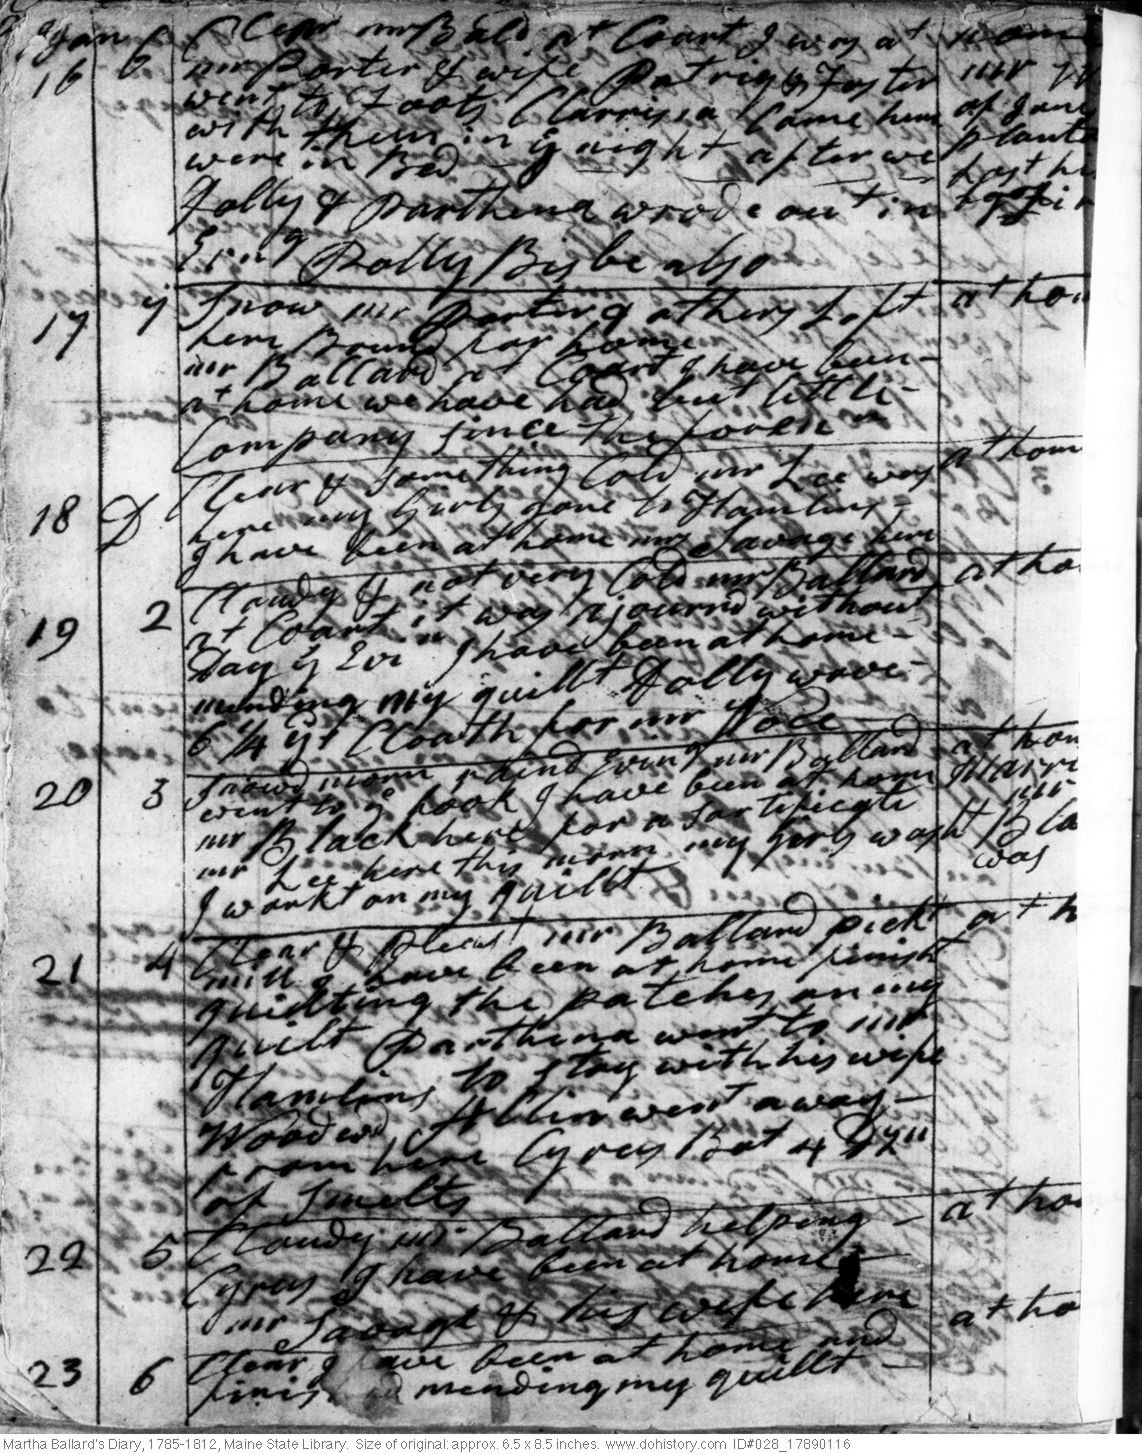 Jan 6 Clear mr Balld at Court I was at home
16 6 mr Porter & wife Patrig & Foster mr
went to Foots Clarissa Came here of Jane
with them in ye night after we
were in Bed - lost his
Dolly & Parthena wrode out in
Evng Polly Bisbe also
17 7 Snow mr Porter & others Left at hom
here Bound for home
mr Ballard at Court I have been -
at home we have had but little -
Company Since the foren n
18 D Clear & something Cold mr Lee was at hom
here my Girls gone to Hamlins -
I have been at home mrs Savage here
19 2 Cloudy & not very Cold mr Ballard at ho
at Court it was ajournd without
Day ys Evn I have been at home -
mending my quillt Dolly wove -
6 1/4 yd Cloath for mr
20 3 Snowd morn raind Evng mr Ballard at hom
went to ye hook I have been at home
mr Black here for a sertificate mr
mr Lee here this morn my girls washt Bla
I workt on my quillt was
21 4 Clear & Pleast mr Ballard pickt at h
mill I have been at home finisht
quillting the patches on my
quilt Parthena went to mr
Hamlins to stay with his wife
Woodwd Allin went away -
from here Cyrus Bot 4
of Smelts
22 5 Cloudy mr Ballard helping - at ho
Cyrus I have been at home -
mr Savage & his wife here
23 6 Clear I have been at home and at ho
finis mending my quillt -
Martha Ballard's Diary, 1785-1812, Maine State Library. Size of original: approx. 6.5 x 8.5 inches. www.dohistory.com ID#028_17890116